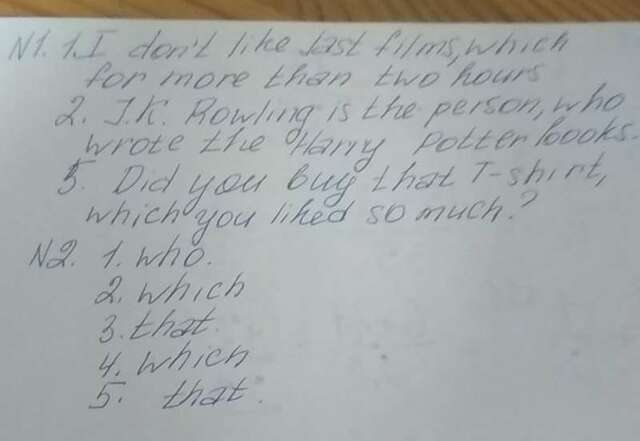 N1. 1. I don't like last films, which
for more than two hours
2. J.K. Rowling is the person, who
wrote the Harry Potter books.
5. Did you buy that T-shirt,
which you liked so much?
N2. 1. who.
2. which
3. that.
4. which
5. that.